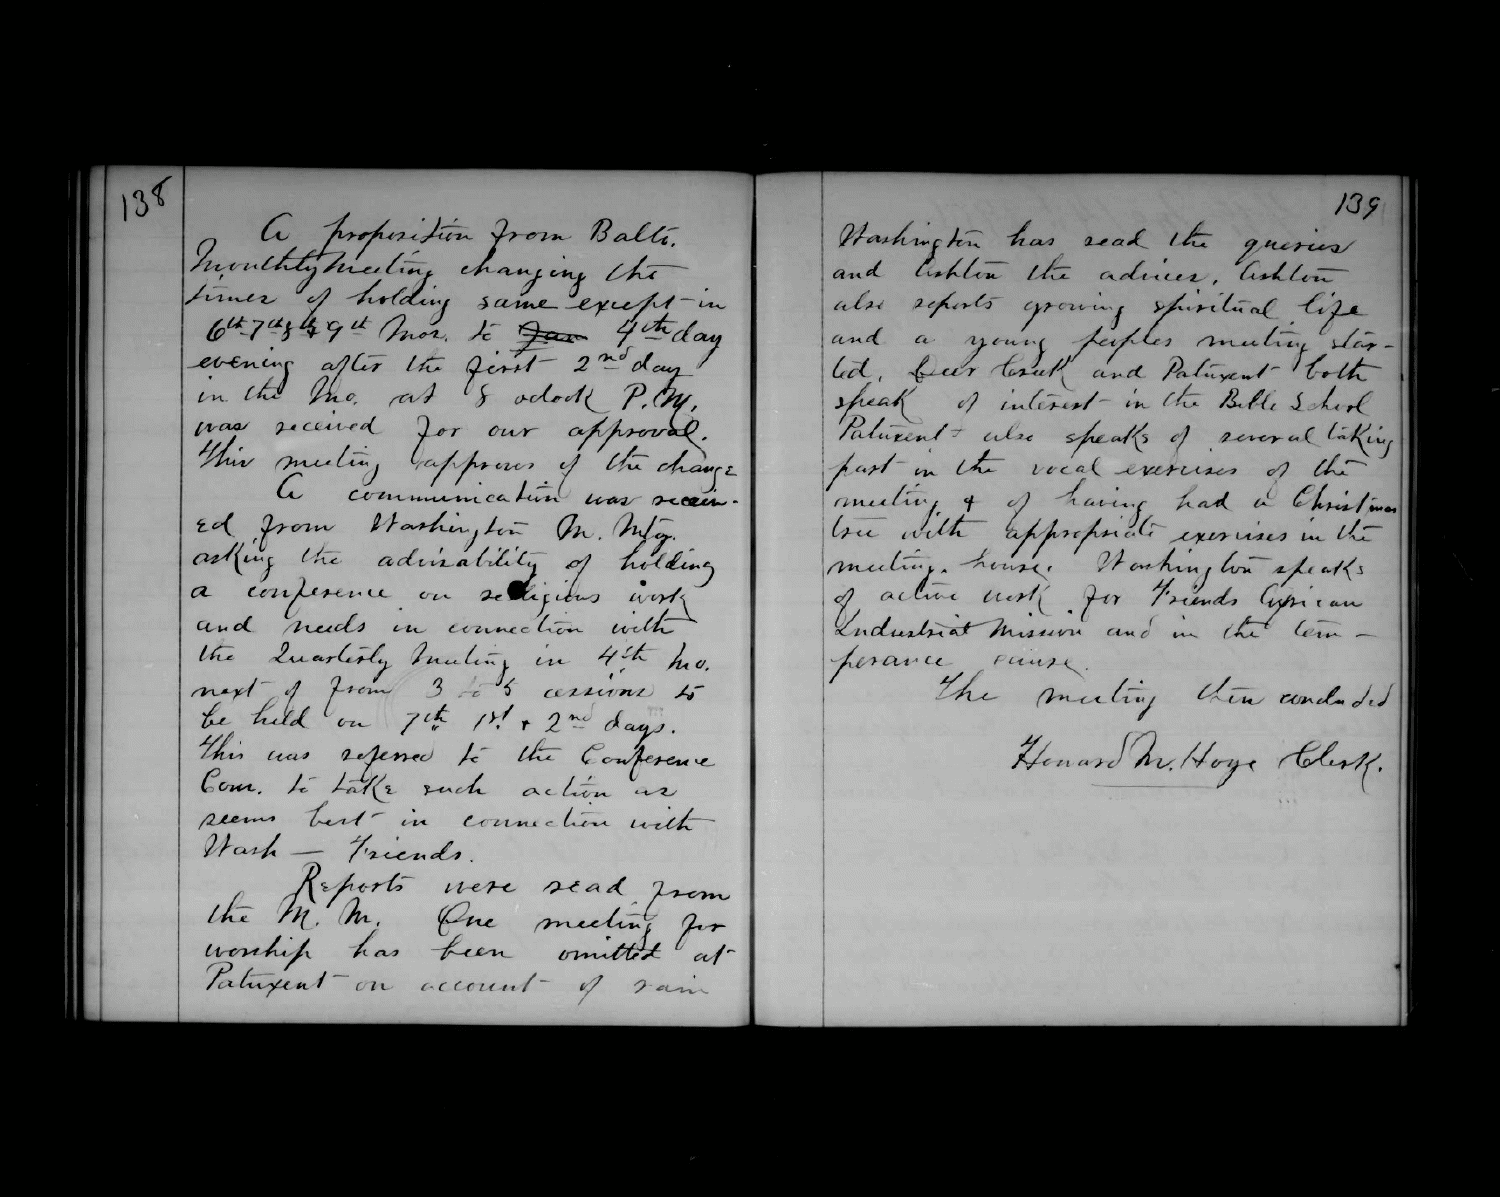 138
A proposition from Balto.
Monthly Meeting changing the
times of holding same except in
6th 7th 8th & 9th Mos. to Jan 4th day
evening after the first 2nd day
in the Mo. at 8 oclock P.M.
was received for our approval.
This meeting approves of the change
A communication was receiv-
ed from Washington M. Mtg.
asking the advisability of holding
a conference on religious work
and needs in connection with
the Quarterly Meeting in 4th Mo.
next of from 3 to 5 cessions to
be held on 7th 1st & 2nd days.
This was referred to the Conference
Com. to take such action as
seems best in connection with
Wash — Friends.
Reports were read from
the M. M. One meeting for
worship has been omitted at
Patuxent on account of rain
139
Washington has read the queries
and Ashton the advices. Ashton
also reports growing spiritual life
and a young peoples meeting star-
ted. Deer Creek and Patuxent both
speak of interest in the Bible School
Patuxent also speaks of several taking
part in the vocal exercises of the
meeting & of having had a Christmas
tree with appropriate exercises in the
meeting-house. Washington speaks
of active work for Friends African
Industrial Mission and in the tem-
perance cause.
The meeting then concluded
Howard M. Hoge Clerk.